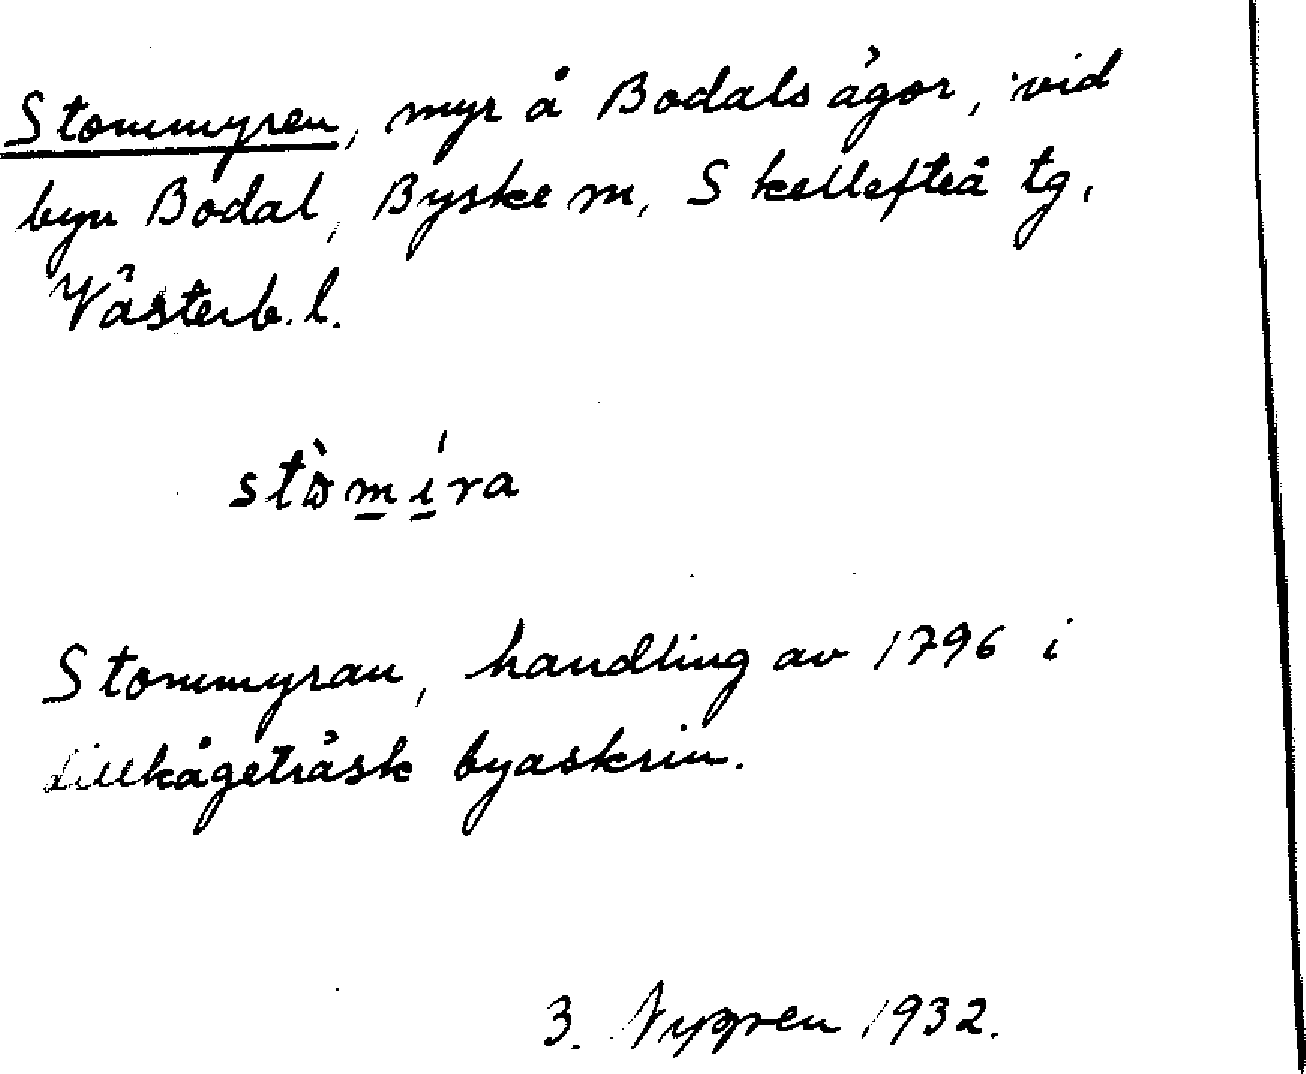 Stommyren, myr å Bodals ägor, vid
byn Bodal, Byske sn, Skellefteå tg,
Västerb. l.
stòmíra
Stommyran, handling av 1796 i
Lillkågeträsk byaskrin.
3. Nygren 1932.